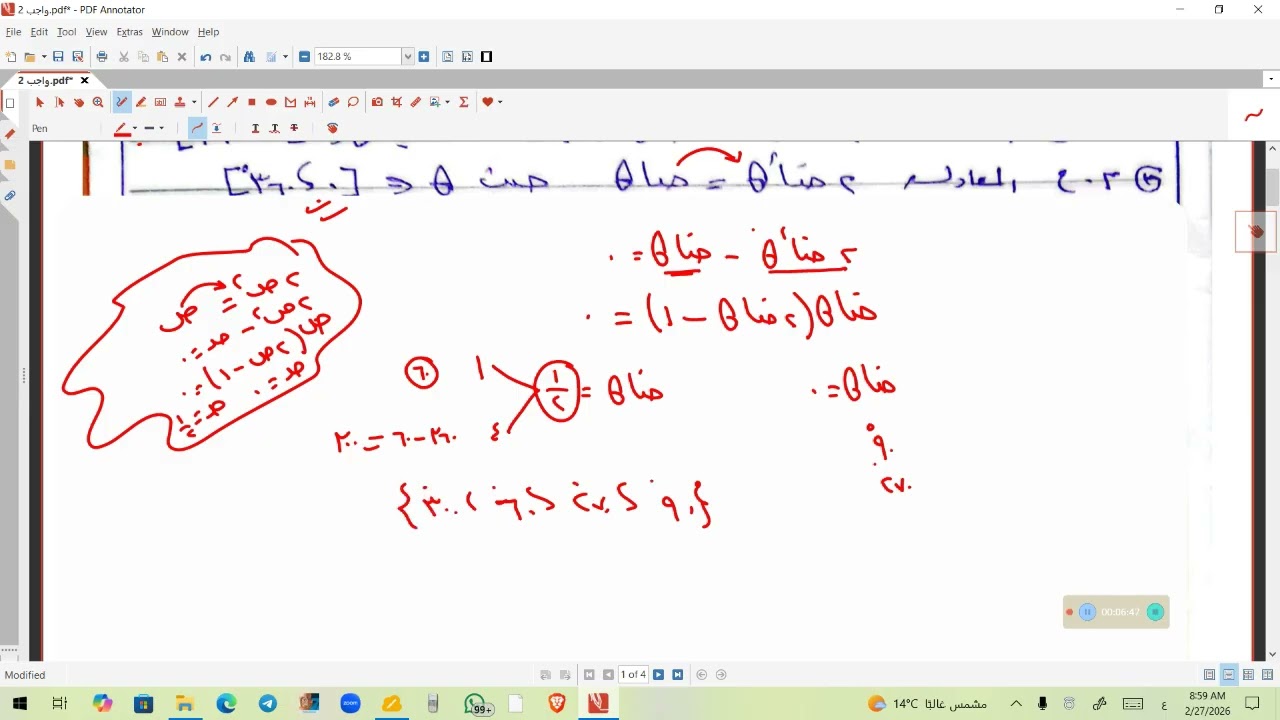 واجب 2.pdf* - PDF Annotator
File Edit Tool View Extras Window Help
182.8 %
واجب 2.pdf*
Pen
م . ح المعادله ٢ حتا٢ θ = حتا θ حيث θ ∈ [٠ ، ٣٦٠]
٢ حتا٢ θ - حتا θ = ٠
حتا θ (٢ حتا θ - ١) = ٠
حتا θ = ٠
حتا θ = ١/٢
١
٤
٦٠
٣٦٠ - ٦٠ = ٣٠٠
٩٠
٢٧٠
{٩٠ ، ٢٧٠ ، ٦٠ ، ٣٠٠}
٢ص٢ = ص
٢ص٢ - ص = ٠
ص (٢ص - ١) = ٠
ص = ٠
ص = ١/٢
00:06:47
Modified
1 of 4
99+
14°C مشمس غالبًا
ع
8:59 AM
2/27/2026